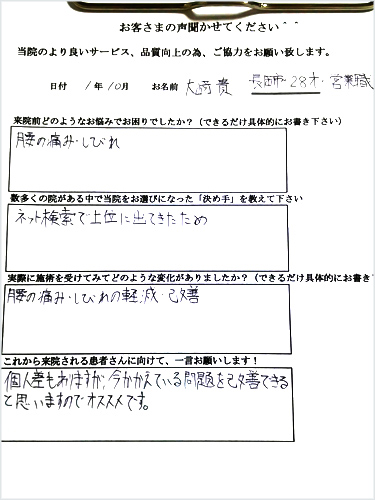 お客さまの声聞かせてください＾＾
当院のより良いサービス、品質向上の為、ご協力をお願い致します。
日付 1年10月 お名前 大崎 貴 長岡市・28才・営業職
来院前どのようなお悩みでお困りでしたか？（できるだけ具体的にお書き下さい）
腰の痛み・しびれ
数多くの院がある中で当院をお選びになった「決め手」を教えて下さい
ネット検索で上位に出てきたため
実際に施術を受けてみてどのような変化がありましたか？（できるだけ具体的にお書き
腰の痛み・しびれの軽減・改善
これから来院される患者さんに向けて、一言お願いします！
個人差もありますが、今かかえている問題を改善できる
と思いますのでオススメです。